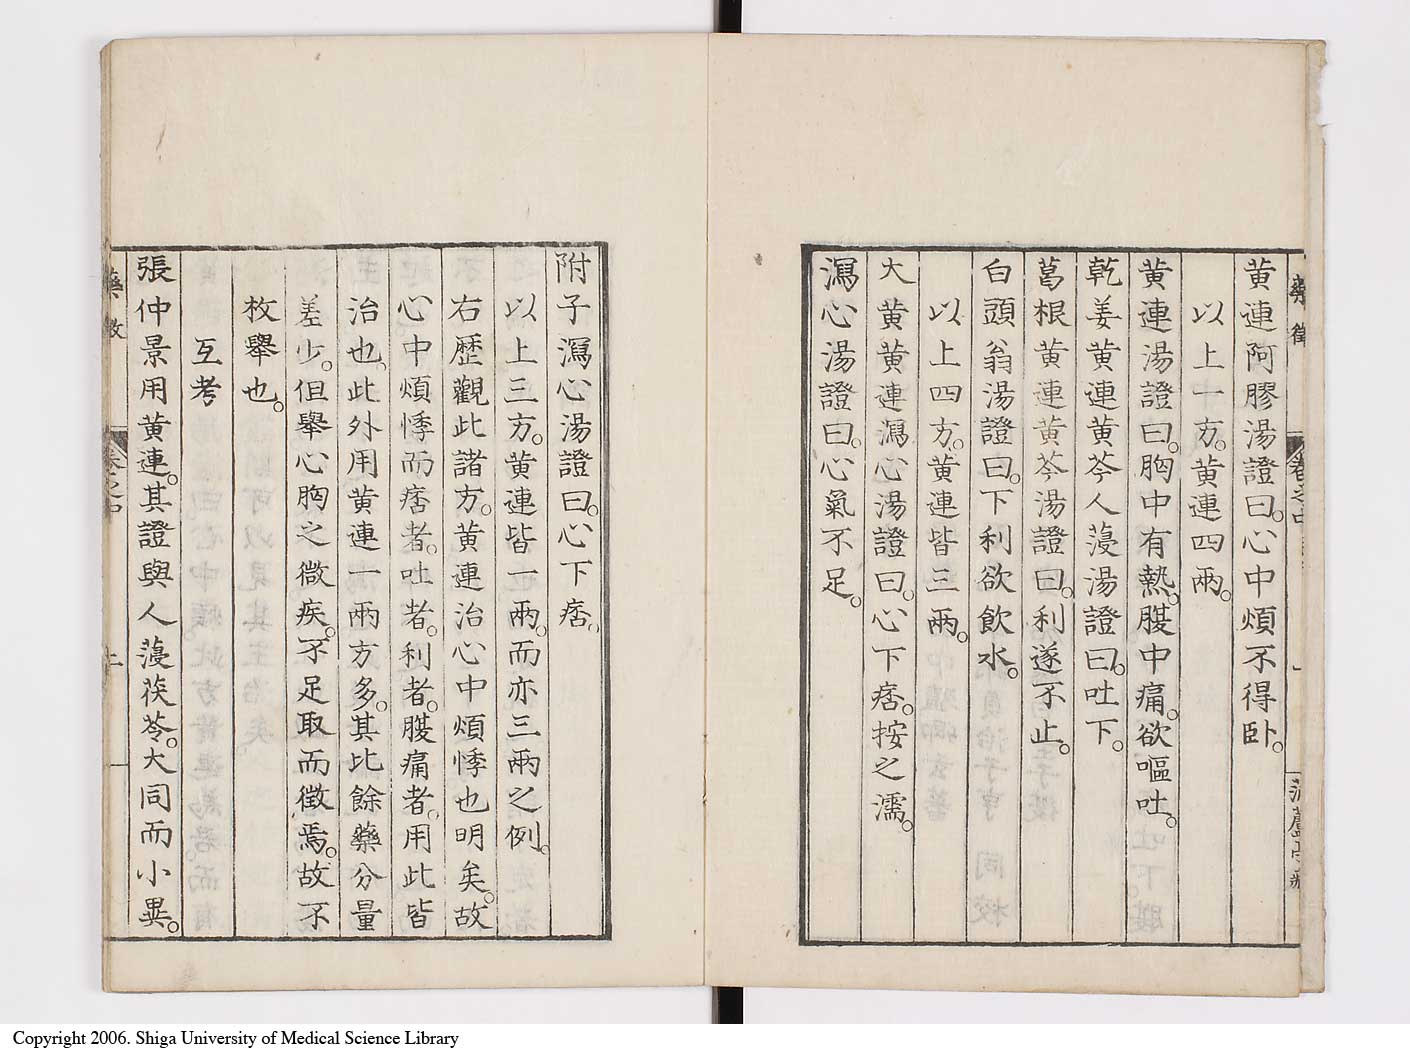 藥徵
卷之中
黃連阿膠湯證曰。心中煩不得卧。
以上一方。黃連四兩。
黃連湯證曰。胸中有熱。腹中痛。欲嘔吐。
乾姜黃連黃芩人薓湯證曰。吐下。
葛根黃連黃芩湯證曰。利遂不止。
白頭翁湯證曰。下利欲飲水。
以上四方。黃連皆三兩。
大黃黃連瀉心湯證曰。心下痞。按之濡。
瀉心湯證曰。心氣不足。
附子瀉心湯證曰。心下痞。
以上三方。黃連皆一兩。而亦三兩之例。
右歷觀此諸方。黃連治心中煩悸也明矣。故
心中煩悸而痞者。吐者。利者。腹痛者。用此皆
治也。此外用黃連一兩方多。其比餘藥分量
差少。但舉心胸之微疾。不足取而徵焉。故不
枚舉也。
互考
張仲景用黃連。其證與人薓茯苓。大同而小異。
Copyright 2006. Shiga University of Medical Science Library